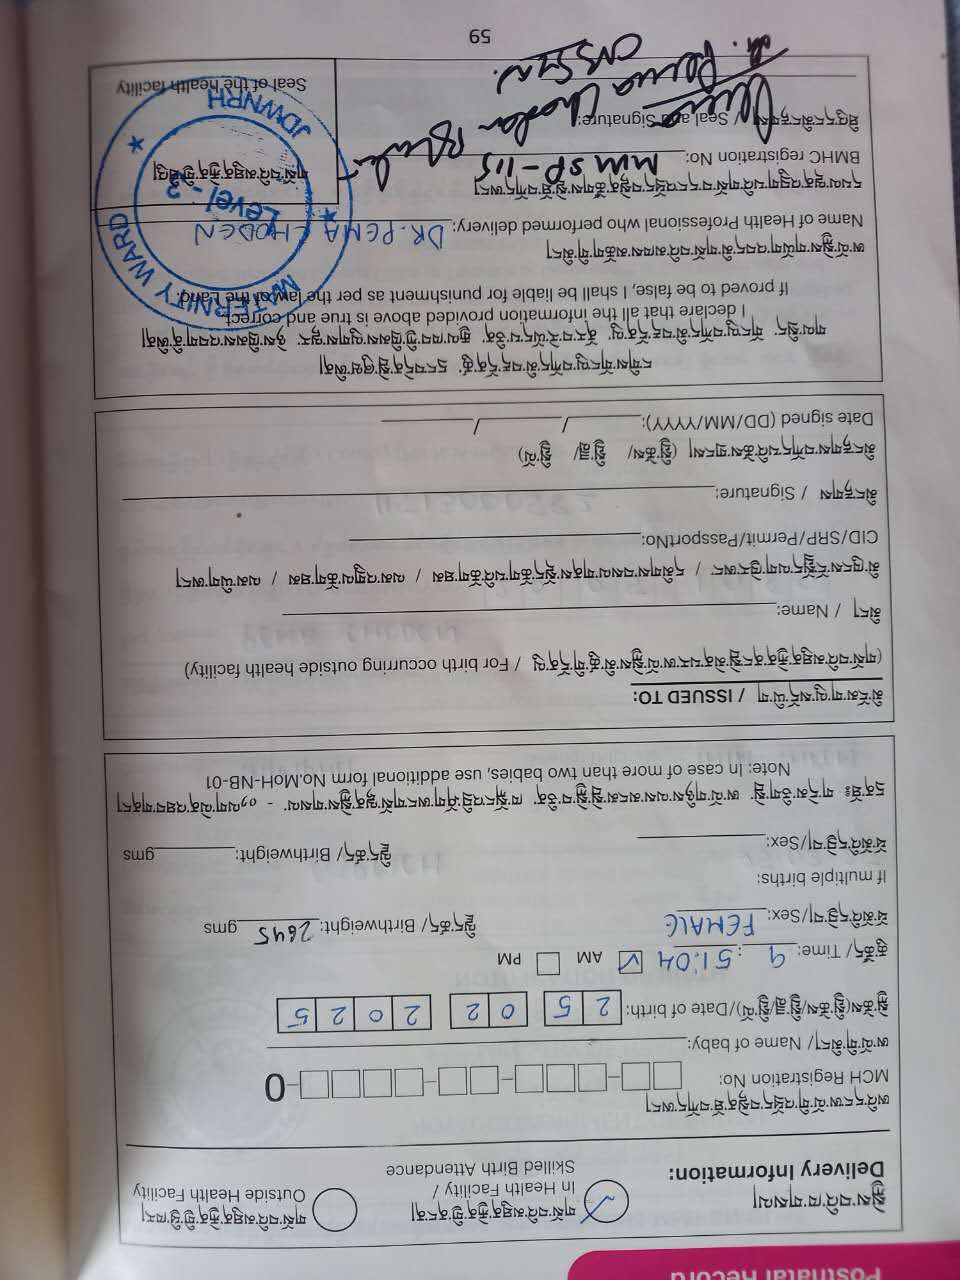 Postnatal Record
སྐྱེས་བའི་ཁ་གསལ།
Delivery Information:
གསོ་བའི་མཐུན་རྐྱེན་གྱི་ནང་ན།
In Health Facility /
Skilled Birth Attendance
གསོ་བའི་མཐུན་རྐྱེན་གྱི་ཕྱི་ཁར།
Outside Health Facility
ཨའི་དང་ཨ་ལོ་གི་འཕྲོད་བསྟེན་ཐོ་བཀོད་ཨང་།
MCH Registration No: - - - -0
ཨ་ལོ་གི་མིང་། / Name of baby:
སྐྱེ་ཚེས(སྤྱི་ཚེས/སྤྱི་ཟླ/སྤྱི་ལོ)/Date of birth: 25 02 2025
ཆུ་ཚོད/ Time: 9 : 51:04 AM PM
ཕོ་མོའི་དབྱེ་བ།/Sex: FEMALE ལྗིད་ཚད/ Birthweight: 2645 gms
If multiple births:
ཕོ་མོའི་དབྱེ་བ།/Sex: ལྗིད་ཚད/ Birthweight: gms
དྲན་ཐོ༔ ག་དེམ་ཅིག་སྦེ་ ཨ་ལོ་གཉིས་ལས་མངམ་སྦེ་སྐྱེ་བ་ཅིན་ ཁ་སྐོང་འབྲི་ཤོག་ཨང་གསོ་ལྷན་སྐྱེས་གསལ་ - ༠༡ལག་ལེན་འཐབ་གནང་།
Note: In case of more than two babies, use additional form No.MoH-NB-01
མི་ངོམ་ག་ལུ་སྤྲོད་ཡི་ག / ISSUED TO:
(གསོ་བའི་མཐུན་རྐྱེན་ནང་སྦེ་མེན་པར་ཨ་ལོ་སྐྱེས་མི་ཚུ་གི་དོན་ལུ / For birth occurring outside health facility)
མིང་། / Name:
མི་ཁུངས་ངོ་སྤྲོད་ལག་ཁྱེར་ཨང་ / དམིགས་བསལ་གནས་སྡོད་ཆོག་པའི་ཆོག་ཐམ / ལམ་འགྲུལ་ཆོག་ཐམ / ལམ་ཡིག་ཨང་།
CID/SRP/Permit/PassportNo:
མིང་རྟགས / Signature:
མིང་རྟགས་བཀོད་པའི་ཚེས་གྲངས། (སྤྱི་ཚེས/ སྤྱི་ཟླ/ སྤྱི་ལོ)
Date signed (DD/MM/YYYY): / /
ང་གིས་གོང་ལུ་བཀོད་མི་བརྡ་དོན་ཚུ་ དྲང་བདེན་སྦེ་ཞུཝ་ཨིན།
གལ་སྲིད་ གོང་ལུ་བཀོད་མི་བརྡ་དོན་ལུ་ ནོར་བ་རེ་ཡོད་པ་ཅིན་ རྒྱལ་ཁབ་ཀྱི་ཁྲིམས་ལུགས་ལྟར་ ཉེས་ཁྲིམས་འབག་ནི་ཨིན།
I declare that all the information provided above is true and correct.
If proved to be false, I shall be liable for punishment as per the law of the Land.
ཨ་ལོ་སྐྱེས་གཡོག་འབད་མི་གསོ་བའི་མཁས་མཆོག་གི་མིང་།
Name of Health Professional who performed delivery: DR. PEMA CHODEN
དཔལ་ལྡན་འབྲུག་པའི་གསོ་བ་དང་འཕྲོད་བསྟེན་ཚོགས་སྡེ་ཐོ་བཀོད་ཨང་།
BMHC registration No: MMSP-115
ཐིའུ་དང་མིང་རྟགས། / Seal and Signature:
Dr. Pema Choden
གསོ་བའི་མཐུན་རྐྱེན་གྱི་ཐིའུ།
Seal of the health facility
MATERNITY WARD
Level - 3
JDWNRH
59